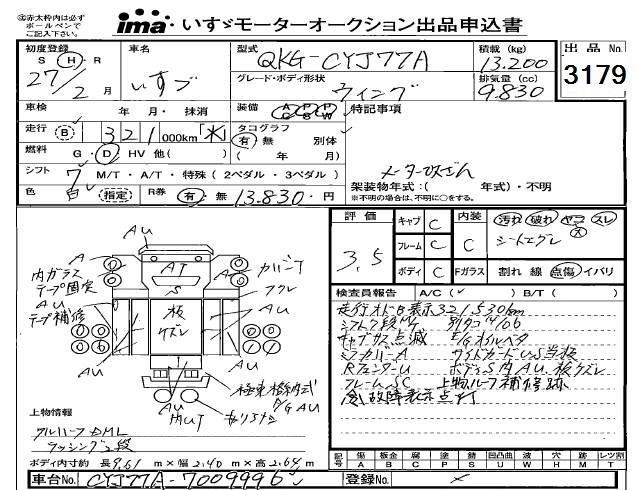 ※赤太枠内は必ず
ボールペンで
ご記入下さい。
ima いすゞモーターオークション出品申込書
初度登録 車名 型式 QKG-CYJ77A 積載 (kg) 13.200
S H R
27/2月 いすゞ グレード・ボディ形状 ウイング 排気量 (cc) 9.830
出品No. 3179
車検 年 月・抹消 装備 AC PS PW 特記事項
走行 B 321,000km「水」 タコグラフ 有 無 別体
燃料 G・D・HV 他( ) ( 年 月)
シフト 7 M/T・A/T・特殊(2ペダル・3ペダル)
メーター改ざん
架装物年式:( 年式)・不明
※不明の場合は、不明に○をする。
色 白 指定 R券 有・無 13.830 円
評価 3.5
キャブ C 内装 C 汚れ 破れ ヤコ スレ
フレーム C シートエグレ
ボディ C Fガラス 割れ 線 点傷 イバリ
検査員報告 A/C( ✓ ) B/T( )
走行オドB表示321,530km
シフト7段M/T
キャブガス点滅 E/Gオイルベタ
シフカバーA サイドガードUS当板
RフェンダーU ボディS内AU、板ケズレ
フレームSC 上物ルーフ補修跡
故障表示点灯
AU
A
内ガラス
テープ固定
AU
テープ補修
AT
S
板
ケズレ
カバーT
AU
AU
AU
極東格納式
P/G AU
内UT
上物情報
ラッシング2段
ボディ内寸約 長9.61 m×幅2.40 m×高2.64 m
記号 傷 板金 腐 塗 錆 凹凸曲 波 穴 外 補 レツ割
A B C P S U W H M T
車台No. CYJ77A-7009996 登録No.